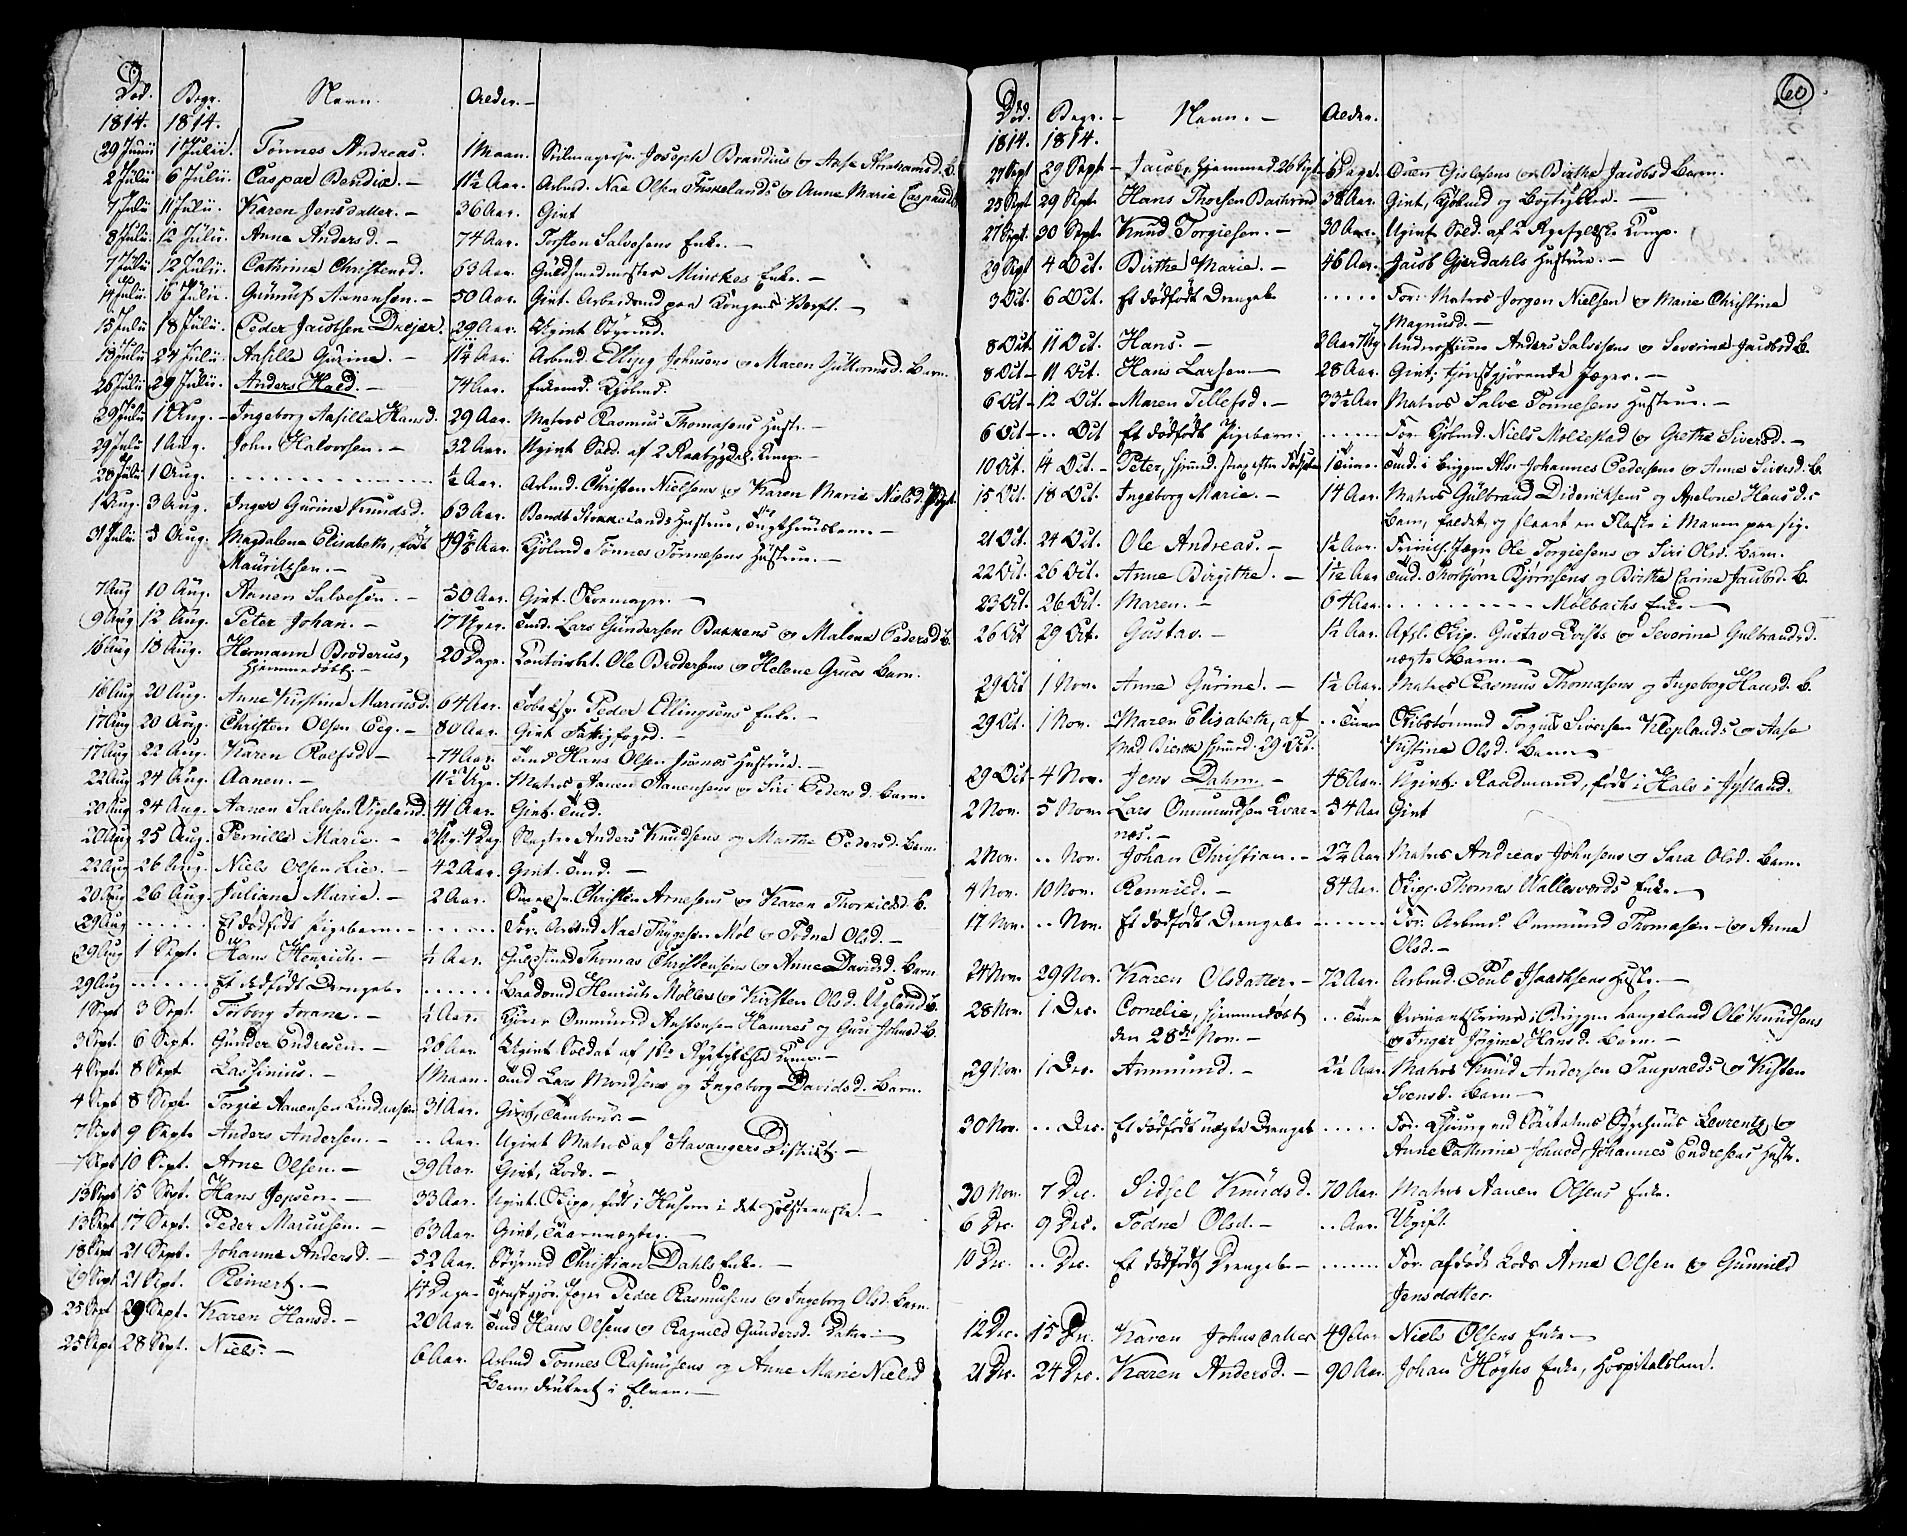 Død. Begr. Navn. Alder.
1814. 1814.
29 Junii 1 Julii. Tønnes Andreas. 1 Maan. Josephs Brandius og Aase Abrahamsd. B.
2 Julii 6 Julii. Caspar Bendix. 11½ Aar. Arbmd. Nae Olsen Fiskelands og Anne Maria Caspersd.
7 Julii 11 Julii. Karen Jensdatter. 36 Aar. Gift
8 Julii. 12 Julii. Anne Andersd. 74 Aar. Torsten Salvesens Enke.
7 Julii 12 Julii. Cathrina Christensd. 63 Aar. Guldsmedmester Minckes Enke.
14 Julii 16 Julii. Gunulf Aanensen. 50 Aar. Gift. Arbeidsmd paa Kongens Werft.
15 Julii 18 Julii. Peder Jacobsen Drejer. 29 Aar. Ugift Byemd.
19 Julii 24 Julii. Aasille Gurine. Arbmd. Ellef Johnsens og Maren Guttormsd. Barn.
26 Julii 29 Julii. Anders Hald. 74 Aar. Enkemd. Kjøbmd.
29 Julii 1 Aug. Ingeborg Aasille Hansd. 29 Aar. Matros Rasmus Thomasens Hustr.
29 Julii 1 Aug. John Halvorsen. 32 Aar. Ugift Sold. af 2 Raabygdel. Comp.
28 Julii 1 Aug. ½ Aar. Arbmd. Christen Nielsens og Karen Maria Nielsd.
1 Aug. 3 Aug. Inger Gurine Knudsd. 63 Aar. Bendt Hustrue, Tugthuuslem.
31 Julii 5 Aug. Magdalena Elisabeth, født 49 Aar. Kjøbmd Tønnes Tønnesens Hustrue.
Mauritzsen.
7 Aug 10 Aug. Aanen Salvesen. 50 Aar. Gift. Skomager.
9 Aug 12 Aug. Peter Johan. 17 Uger. Tmd. Lars Gundersen Bakkens og Malene Pedersd. B.
16 Aug 18 Aug. Hermann Broderus, 20 Dage. Contoirbet. Ole Brodersens og Helene Grues Barn.
Hjemmedøbt.
16 Aug 20 Aug. Anne Kirstine Marcusd. 64 Aar. Peder Ellingsens Enke.
17 Aug 20 Aug. Christen Olsen Eeg. 80 Aar. Gift Fattigfoged.
17 Aug 22 Aug. Karen Rolfsd. 74 Aar. Tmd Hans Olsen Hustrue.
22 Aug 24 Aug. Aanen. 11½ Uge. Matros Aanen Aanensens og Siri Pedersd. Barn.
20 Aug 24 Aug. Aanen Salvesen Vigeland 41 Aar. Gift. Tmd.
20 Aug 25 Aug. Pernille Marie. Anders Knudsens og Marthe Pedersd. Barn.
22 Aug 26 Aug. Niels Olsen Lie. 42 Aar. Gift. Tmd.
20 Aug 26 Aug. Juliane Maria. 2 Aar. Christen Arnesens og Karen Thorkildsd. B.
29 Aug Et dødfødt Pigebarn. For. Arbmd Nae Thygesen Møl og Todne Olsd.
29 Aug 1 Sept. Hans Henrich. ½ Aar. Thomas Christensens og Anne Davidsd. Barn
29 Aug Et dødfødt Drengeb. Baadsmd Henrich Møllers og Kirsten Olsd. Ugland B.
1 Sept 3 Sept. Torborg Torane. ½ Aar. Ommund Austensen Hamres og Guri Johnsd. B.
3 Sept. 6 Sept. Gunder Endresen. 28 Aar. Ugift Soldat af 1ste Agefylkets Comp.
4 Sept. 8 Sept Lassinius. 1 Maan. Tmd Lars Monsens og Ingeborg Davidsd. Barn.
4 Sept 8 Sept. Torgie Aanensen Lindaasen 31 Aar. Gift, Tambour.
7 Sept 9 Sept. Anders Andersen. .. Aar. Ugift Matros af Stavanger District.
7 Sept 10 Sept. Arne Olsen. 39 Aar. Gift, Lods.
13 Sept 15 Sept. Hans Jepsen. 33 Aar. Ugift. Skipp. født i Husum i det Holsteenske.
13 Sept 17 Sept. Peder Marcusen. 63 Aar. Gift,
18 Sept 21 Sept. Johanne Andersd. 52 Aar. Byemd Christian Dahls Enke.
19 Sept 21 Sept. Reinert. 14 Dage Tjenstgjør. Jæger Peder Rasmusens og Ingeborg Olsd. Barn.
25 Sept 29 Sept. Karen Hansd. 20 Aar. Tmd Hans Olsens og Ragnild Gundersd. Datter.
25 Sept 28 Sept. Niels. 6 Aar. Arbmd Tønnes Rasmusens og Anne Marie Nielsd
Barn druknet i Elven.
60
Død. Begr. Navn. Alder.
1814. 1814.
27 Sept 29 Sept. Jacob, Hjemmed. 26 Sept. 6 Dage. Oven Gislesens og Birthe Jacobsd Barn.
25 Sept 29 Sept. Hans Thorsen 38 Aar. Gift, Kjøbmd og Bogtrykker.
27 Sept. 30 Sept. Knud Torgiesen. 30 Aar. Ugift Sold. af 2 Agefylkske Comp.
29 Sept 4 Oct. Birthe Marie. 46 Aar. Jacob Gjerdahls Hustrue.
3 Oct. 6 Oct. Et dødfødt Drengeb. For. Matros Jørgen Nielsen og Marie Christine
Magnusd.
8 Oct. 11 Oct. Hans. Anders Salvesens og Severine Jacobsd B.
8 Oct 11 Oct. Hans Larsen 28 Aar. Gift, tjenstgjørende Jæger.
6 Oct 12 Oct. Maren Tellefsd. 33½ Aar Matros Salve Tønnesens Hustrue.
6 Oct .. Oct Et dødfødt Pigebarn. For. Kjøbmd. Niels Mollestad og Grethe Siversd.
10 Oct. 14 Oct. Peter, Hjemmd. strax efter Fødselen 1 Time. Tmd. i Briggen Alsr Johannes Pedersens og Anne Siversd. B.
15 Oct. 18 Oct. Ingeborg Marie. 14 Aar. Matros Gulbrand Didericksens og Apelone Hansd.
Barn, faldet, og slaaet en Flaske i Maven paa sig.
21 Oct. 24 Oct. Ole Andreas. 1½ Aar. Ole Torgiesens og Siri Olsd. Barn.
22 Oct. 26 Oct. Anne Birgithe. 1½ Aar Tmd. Thorbjørn Bjørnsens og Birthe Carine Jacobsd. B.
23 Oct. 26 Oct. Maren. 64 Aar. Molbachs Enke
26 Oct 29 Oct. Gustav. 1½ Aar. Afsl. Skip. Gustav og Severine Gulbrandsd.
uægte Barn.
29 Oct 1 Nov. Anne Gurine. 1½ Aar. Matros Rasmus Thomasens og Ingeborg Hansd. B.
29 Oct. 1 Nov. Maren Elisabeth, af .. Timer Skibstømmd Torgius Siversen Kleplands og Aase
Mad Bierck Hjemmd. 29 Oct. Kistine Olsd. Barn
29 Oct 4 Nov. Jens Dahm. 48 Aar. Ugift. Raadmand, født i Hals i Jylland.
2 Nov. 5 Nov. Lars Ommundsen Qvar- 54 Aar Gift
næs.
2 Nov. .. Nov. Johan Christian. 2¼ Aar Matros Andreas Johnsens og Sara Olsd. Barn.
4 Nov. 10 Nov. Rennild. 84 Aar. Skip. Thomas Wallesværds Enke.
17 Nov. .. Nov. Et dødfødt Drengeb. For. Arbmd. Ommund Thomasen og Anne
Olsd.
24 Nov. 29 Nov. Karen Olsdatter. 72 Aar. Arbmd. Poul Isaachsens Hustr.
28 Nov. 1 Dec. Cornelia, Hjemmedøbt .. Timer i Briggen Langeland Ole Knudsens
den 28de Nov. og Inger Jørgine Hansd. Barn.
29 Nov. 1 Dec. Ammund. 2½ Aar. Matros Knud Andersen Tangvalds og Kisten
Svensd. Barn
30 Nov. .. Dec. Et dødfødt uægte Drengeb For. ved Sygehuus Levrentz og
Anne Cathrine Johnsd, Johannes Endresens Hustr.
30 Nov. 7 Dec. Sidsel Knudsd. 70 Aar. Matros Aanen Olsens Enke.
6 Dec. 9 Dec. Todne Olsd. .. Aar. Ugift.
10 Dec. .. Dec. Et dødfødt Drengeb. For. afdøde Lods Arne Olsen og Gunvild
Jensdatter.
12 Dec. 15 Dec. Karen Johnsdatter 49 Aar Niels Olsens Enke
21 Dec. 24 Dec. Karen Andersd. 90 Aar. Johan Høghs Enke, Hospitalslem.